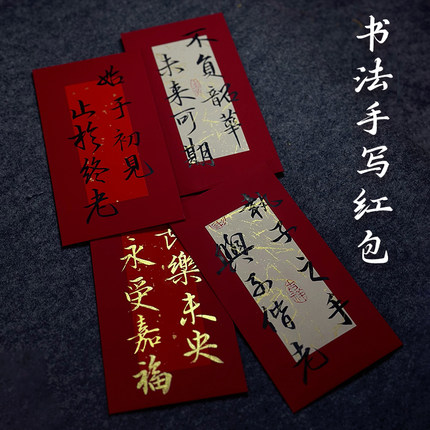 书法手写红包
不负韶华
未来可期
始于初見
止於终老
長樂未央
永受嘉福
執子之手
與子偕老